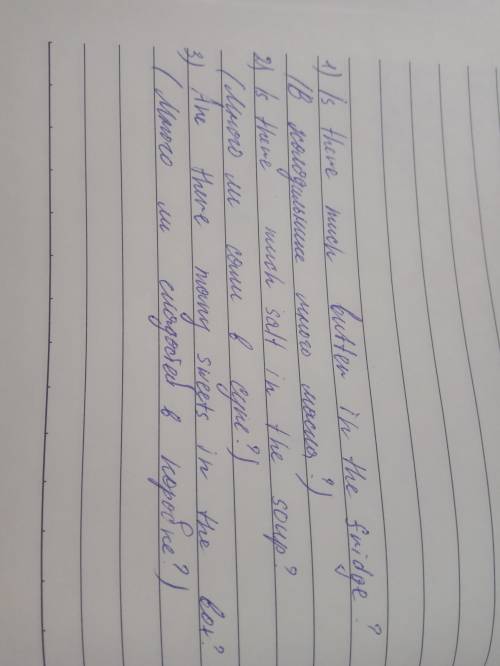 1) Is there much butter in the fridge?
(В холодильнике много масла?)
2) Is there much salt in the soup?
(Много ли соли в супе?)
3) Are there many sweets in the box?
(Много ли сладостей в коробке?)